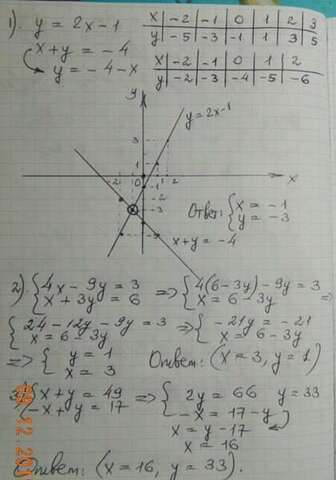 1). y = 2x - 1
x -2 -1 0 1 2 3
y -5 -3 -1 1 3 5
x + y = -4
y = -4 - x
x -2 -1 0 1 2
y -2 -3 -4 -5 -6
y
y = 2x - 1
3
1
-2 -1 0 1 2
x
-1
-2
-3
x + y = -4
Ответ: { x = -1
y = -3
2) { 4x - 9y = 3 => { 4(6 - 3y) - 9y = 3
x + 3y = 6 x = 6 - 3y =>
{ 24 - 12y - 9y = 3 => { -21y = -21
x = 6 - 3y x = 6 - 3y
=> { y = 1
x = 3
Ответ: (x = 3, y = 1)
3) { x + y = 49 => { 2y = 66 y = 33
-x + y = 17 -x = 17 - y
x = y - 17
x = 16
Ответ: (x = 16, y = 33).